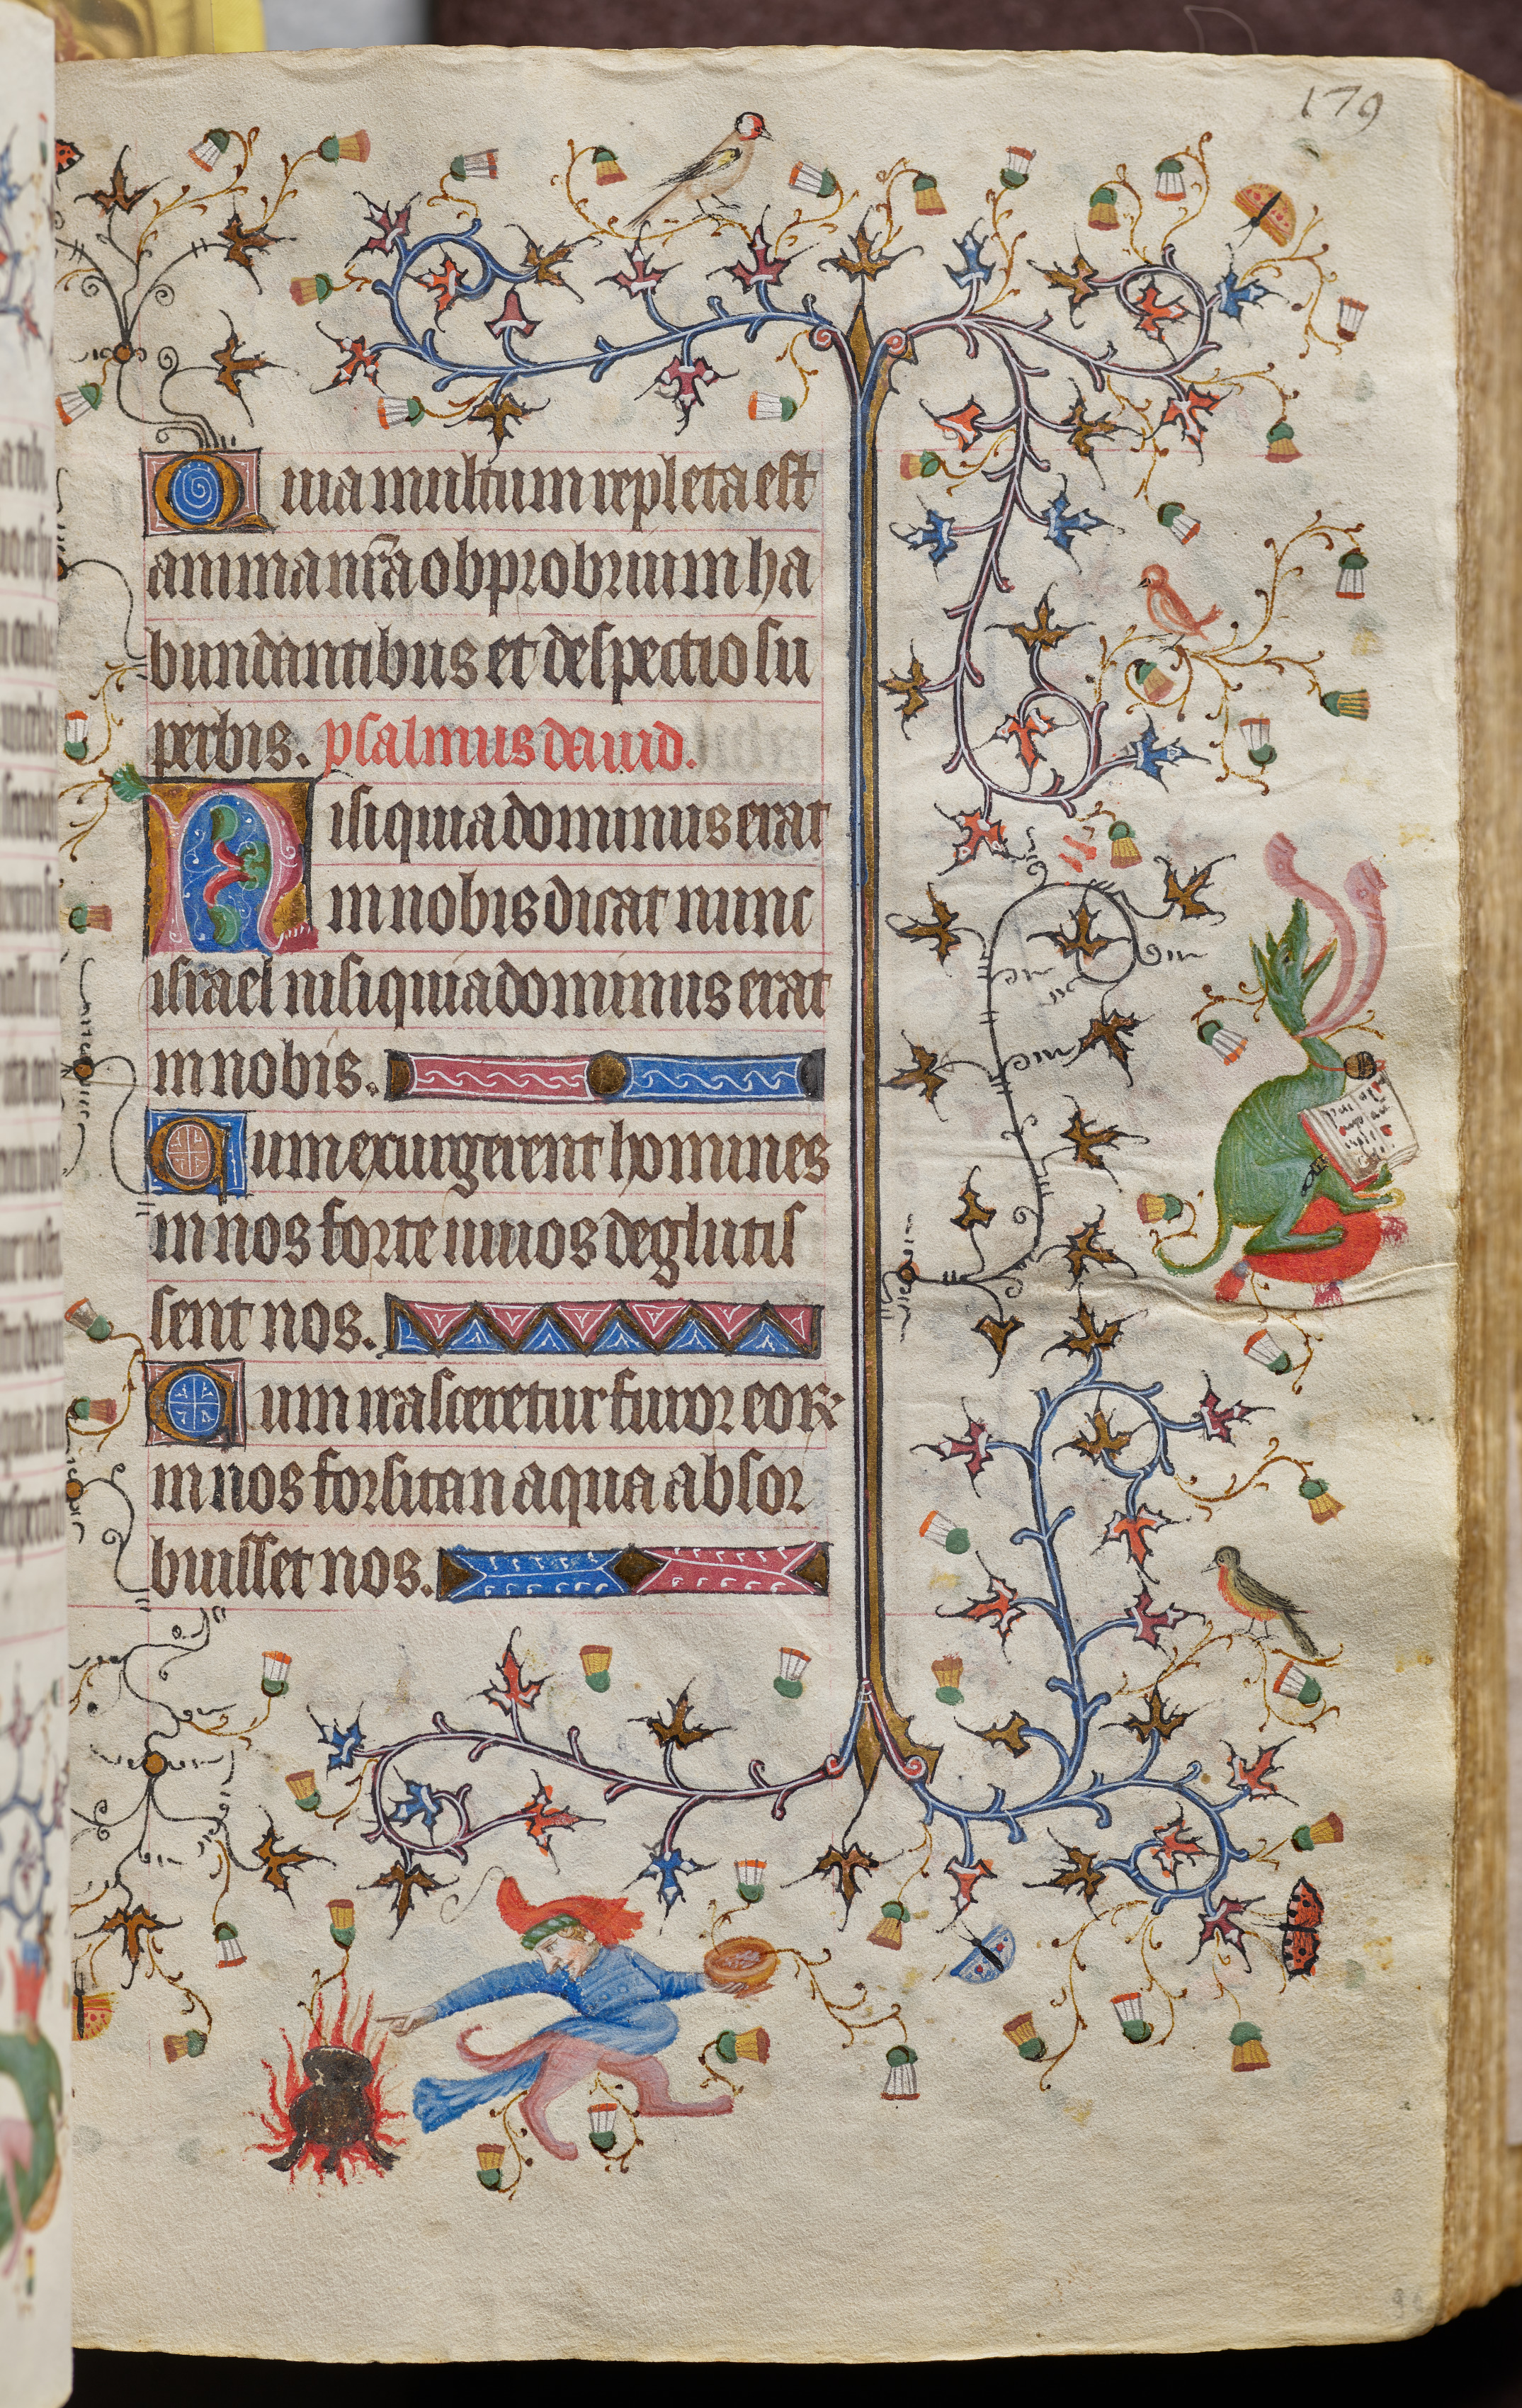 179
Quia multum repleta est
anima nr̃a obprobrium ha
bundantibus et despectio su
perbis. psalmus dauid.
Nisi quia dominus erat
in nobis dicat nunc
israel nisi quia dominus erat
in nobis.
Cum exurgerent homines
in nos forte uiuos deglutis
sent nos.
Cum irasceretur furor eoꝝ
in nos forsitan aqua absor
buisset nos.